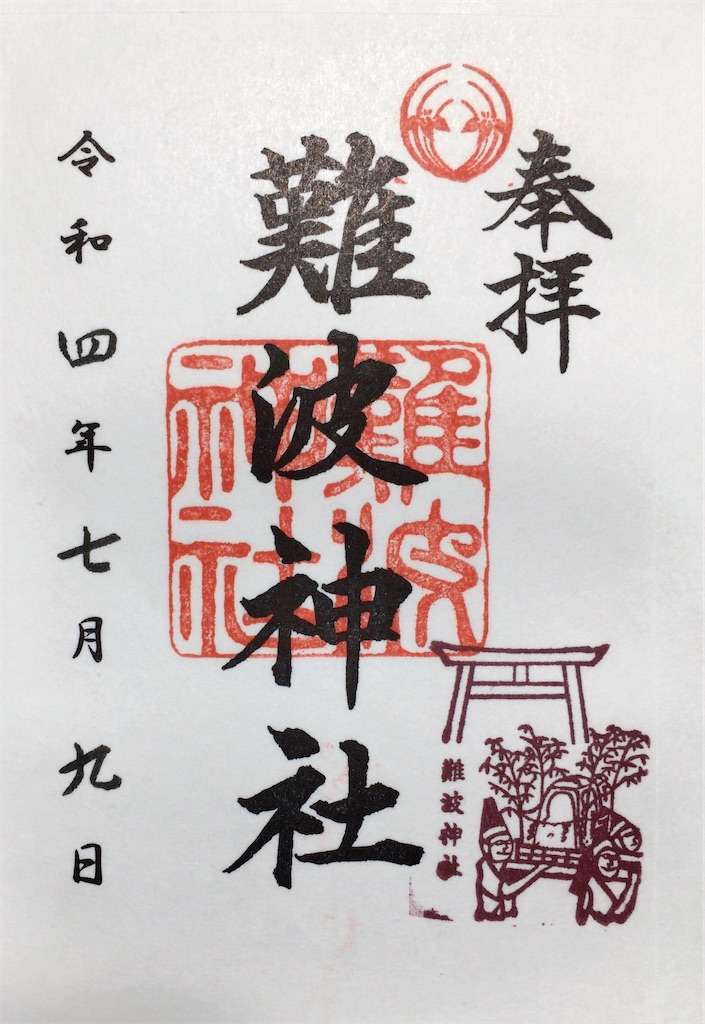 奉拝
難波神社
難波神社
難波神社
令和四年七月九日